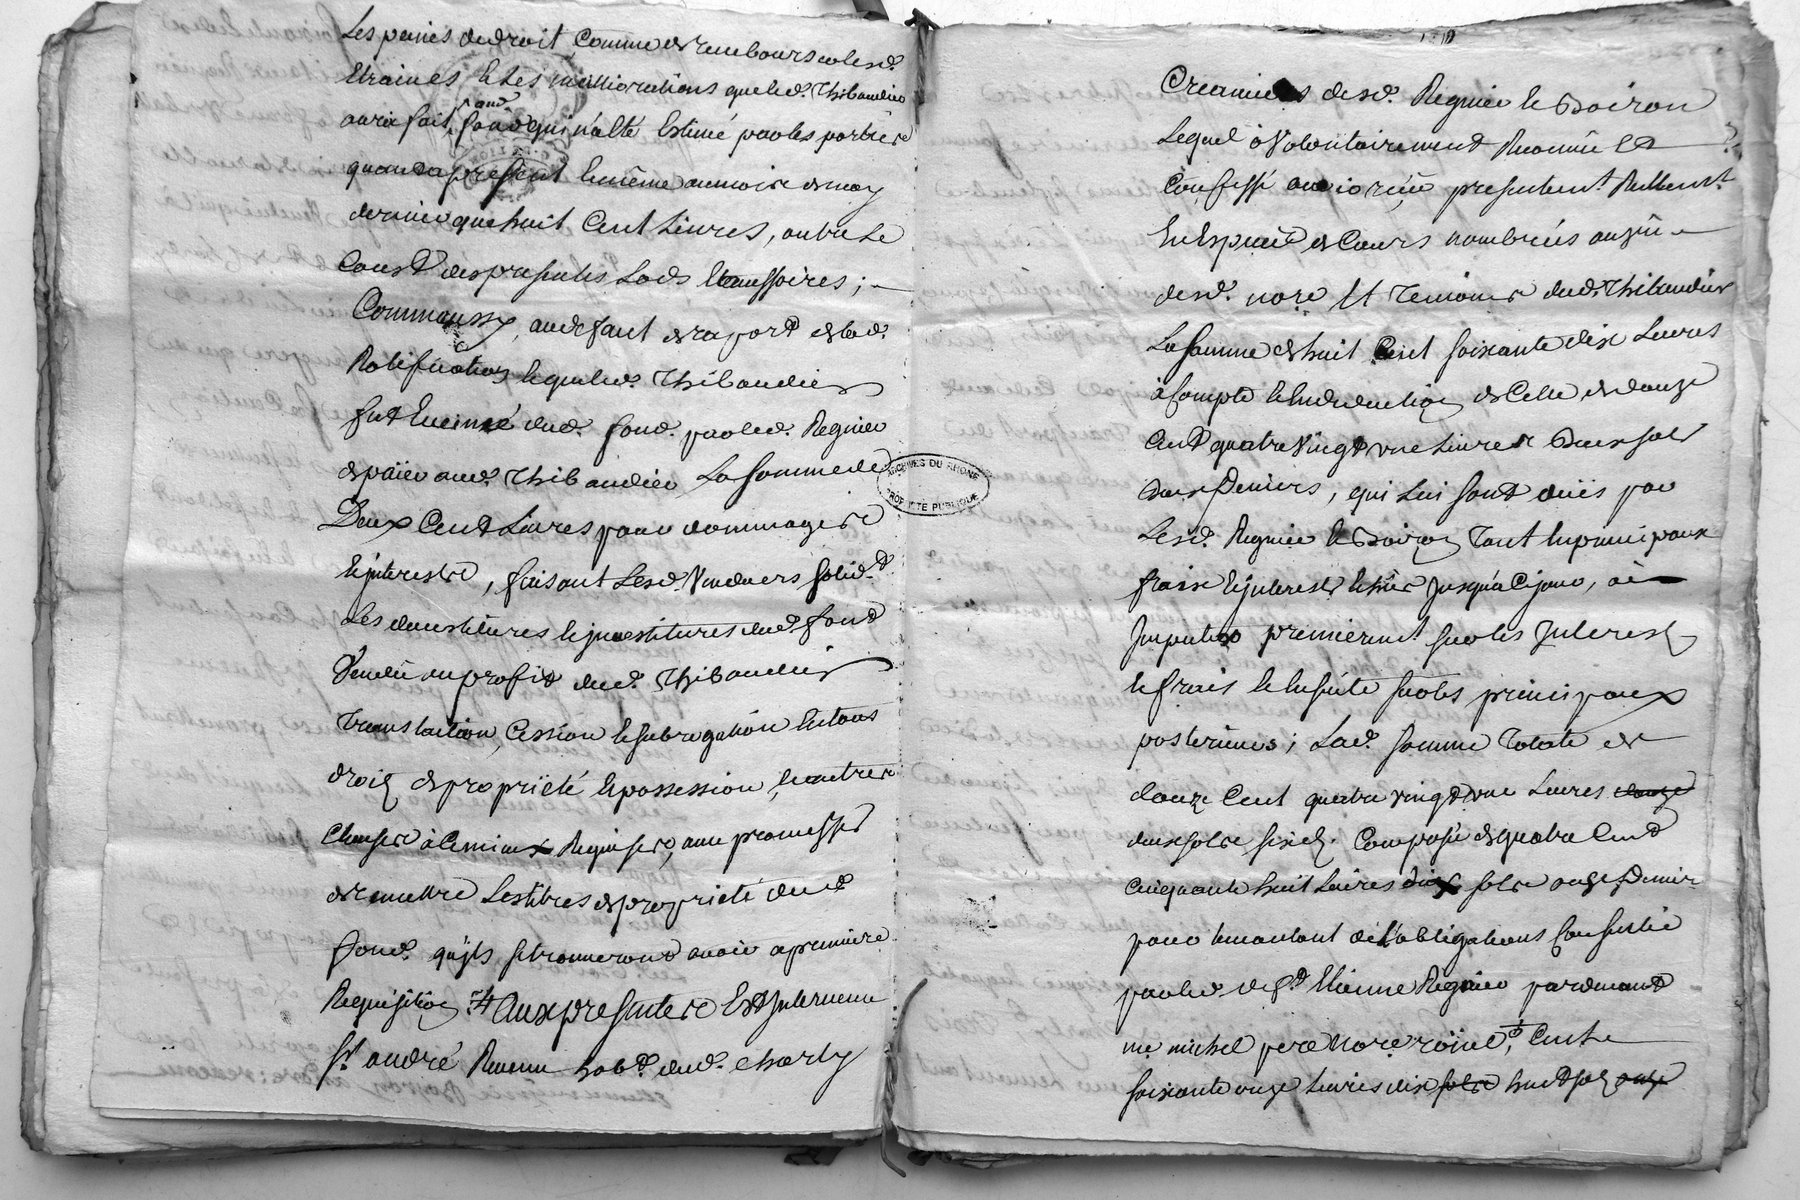 Les peines de droit Comme de rembourser les d.
Etraines & les milliorations que le d. Thibaudier
aura fait, aud. fond qui n'a été Estimé par les parties
quand a présent le même au mois de may
dernier que huit Cent Livres, outre Le
Coust des presentes Lods & accessoires ;
Comm aussy, au deffaut de raport de la d.
Ratification & que le d. Thibaudier
fut Evincé dud. fond. par le d. Regnier
de païer aud. Thibaudier La somme de
Deux Cent Livres pour dommages
& interest, faisant Les d. Vendeurs solid.t
Les devestitures & investitures dud. fond
Vendu au profit dud. Thibaudier
translation, Cession & subrogation En tous
droits de propriété & possession, & autres
Clauses à Ce mieux Requises, avec promesse
de remettre Les titres de propriété dud.
fond. qu'ils se trouveront avoir a première
Requisition Aux presentes Est Intervenu
Sr. andré Revenu hab.t dud. Charly
Creancier desd. Regnier & Boiron
Lequel à Volontairement Reconnu &
Confessé avoir reçu presentem.t Réellem.t
En Espece de Cours nombrées au vû
desd. nore Et Temoins dud. Thibaudier
La somme de huit Cent soixante dix Livres
à Compte & En deduction de Celle de douze
Cent quatre Vingt une Livres Deux sols
Deniers, qui Lui sont dûës par
Les d. Regnier & Boiron Tant En principaux
frais & interest & Jusqu'a Ce jour, à
Imputer premierem.t sur les Interest
& frais & En suite sur les principaux
posterieurs ; La d. somme Totale de
douze Cent quatre vingt une Livres douze
deux sols six d. Composée de quatre Cent
Cinquante huit Livres dix sols onze Denier
pour le montant de l'obligations Consentie
par led. Etienne Regnier pardevant
me michel pere Nore roïial, Cent
soixante onze Livres dix sols huit sols onze
ARCHIVES DU RHONE
PROPRIETE PUBLIQUE